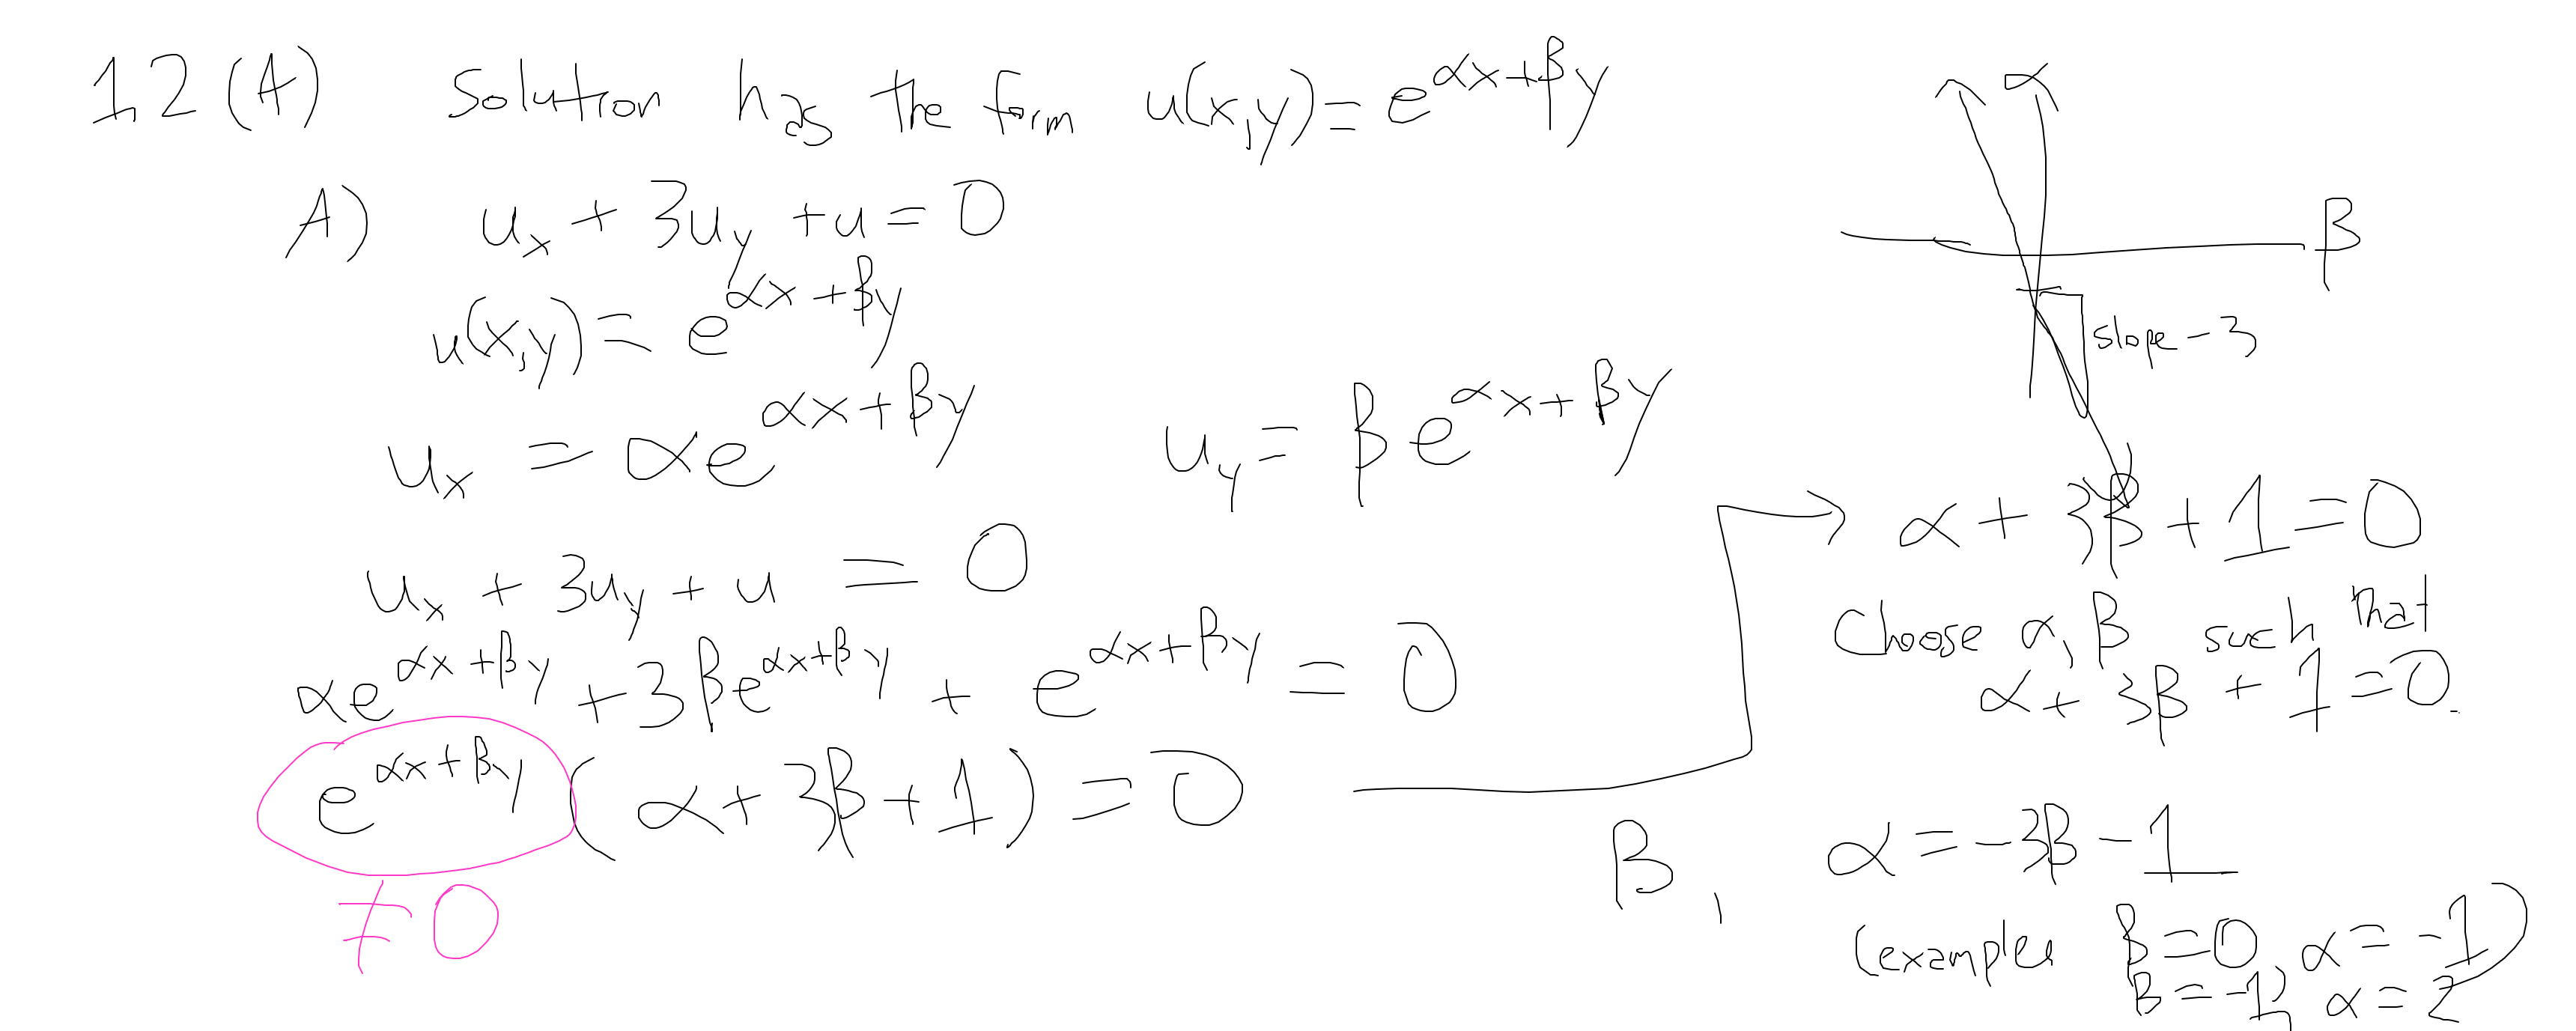 1.2 (A) Solution has the form u(x,y) = e^{αx+βy}
A) u_x + 3u_y + u = 0
u(x,y) = e^{αx+βy}
u_x = αe^{αx+βy} u_y = βe^{αx+βy}
u_x + 3u_y + u = 0
αe^{αx+βy} + 3βe^{αx+βy} + e^{αx+βy} = 0
e^{αx+βy} (α + 3β + 1) = 0
≠ 0
α
β
slope -3
α + 3β + 1 = 0
Choose α, β such that
α + 3β + 1 = 0.
β, α = -3β - 1
(examples β = 0, α = -1)
β = -1, α = 2